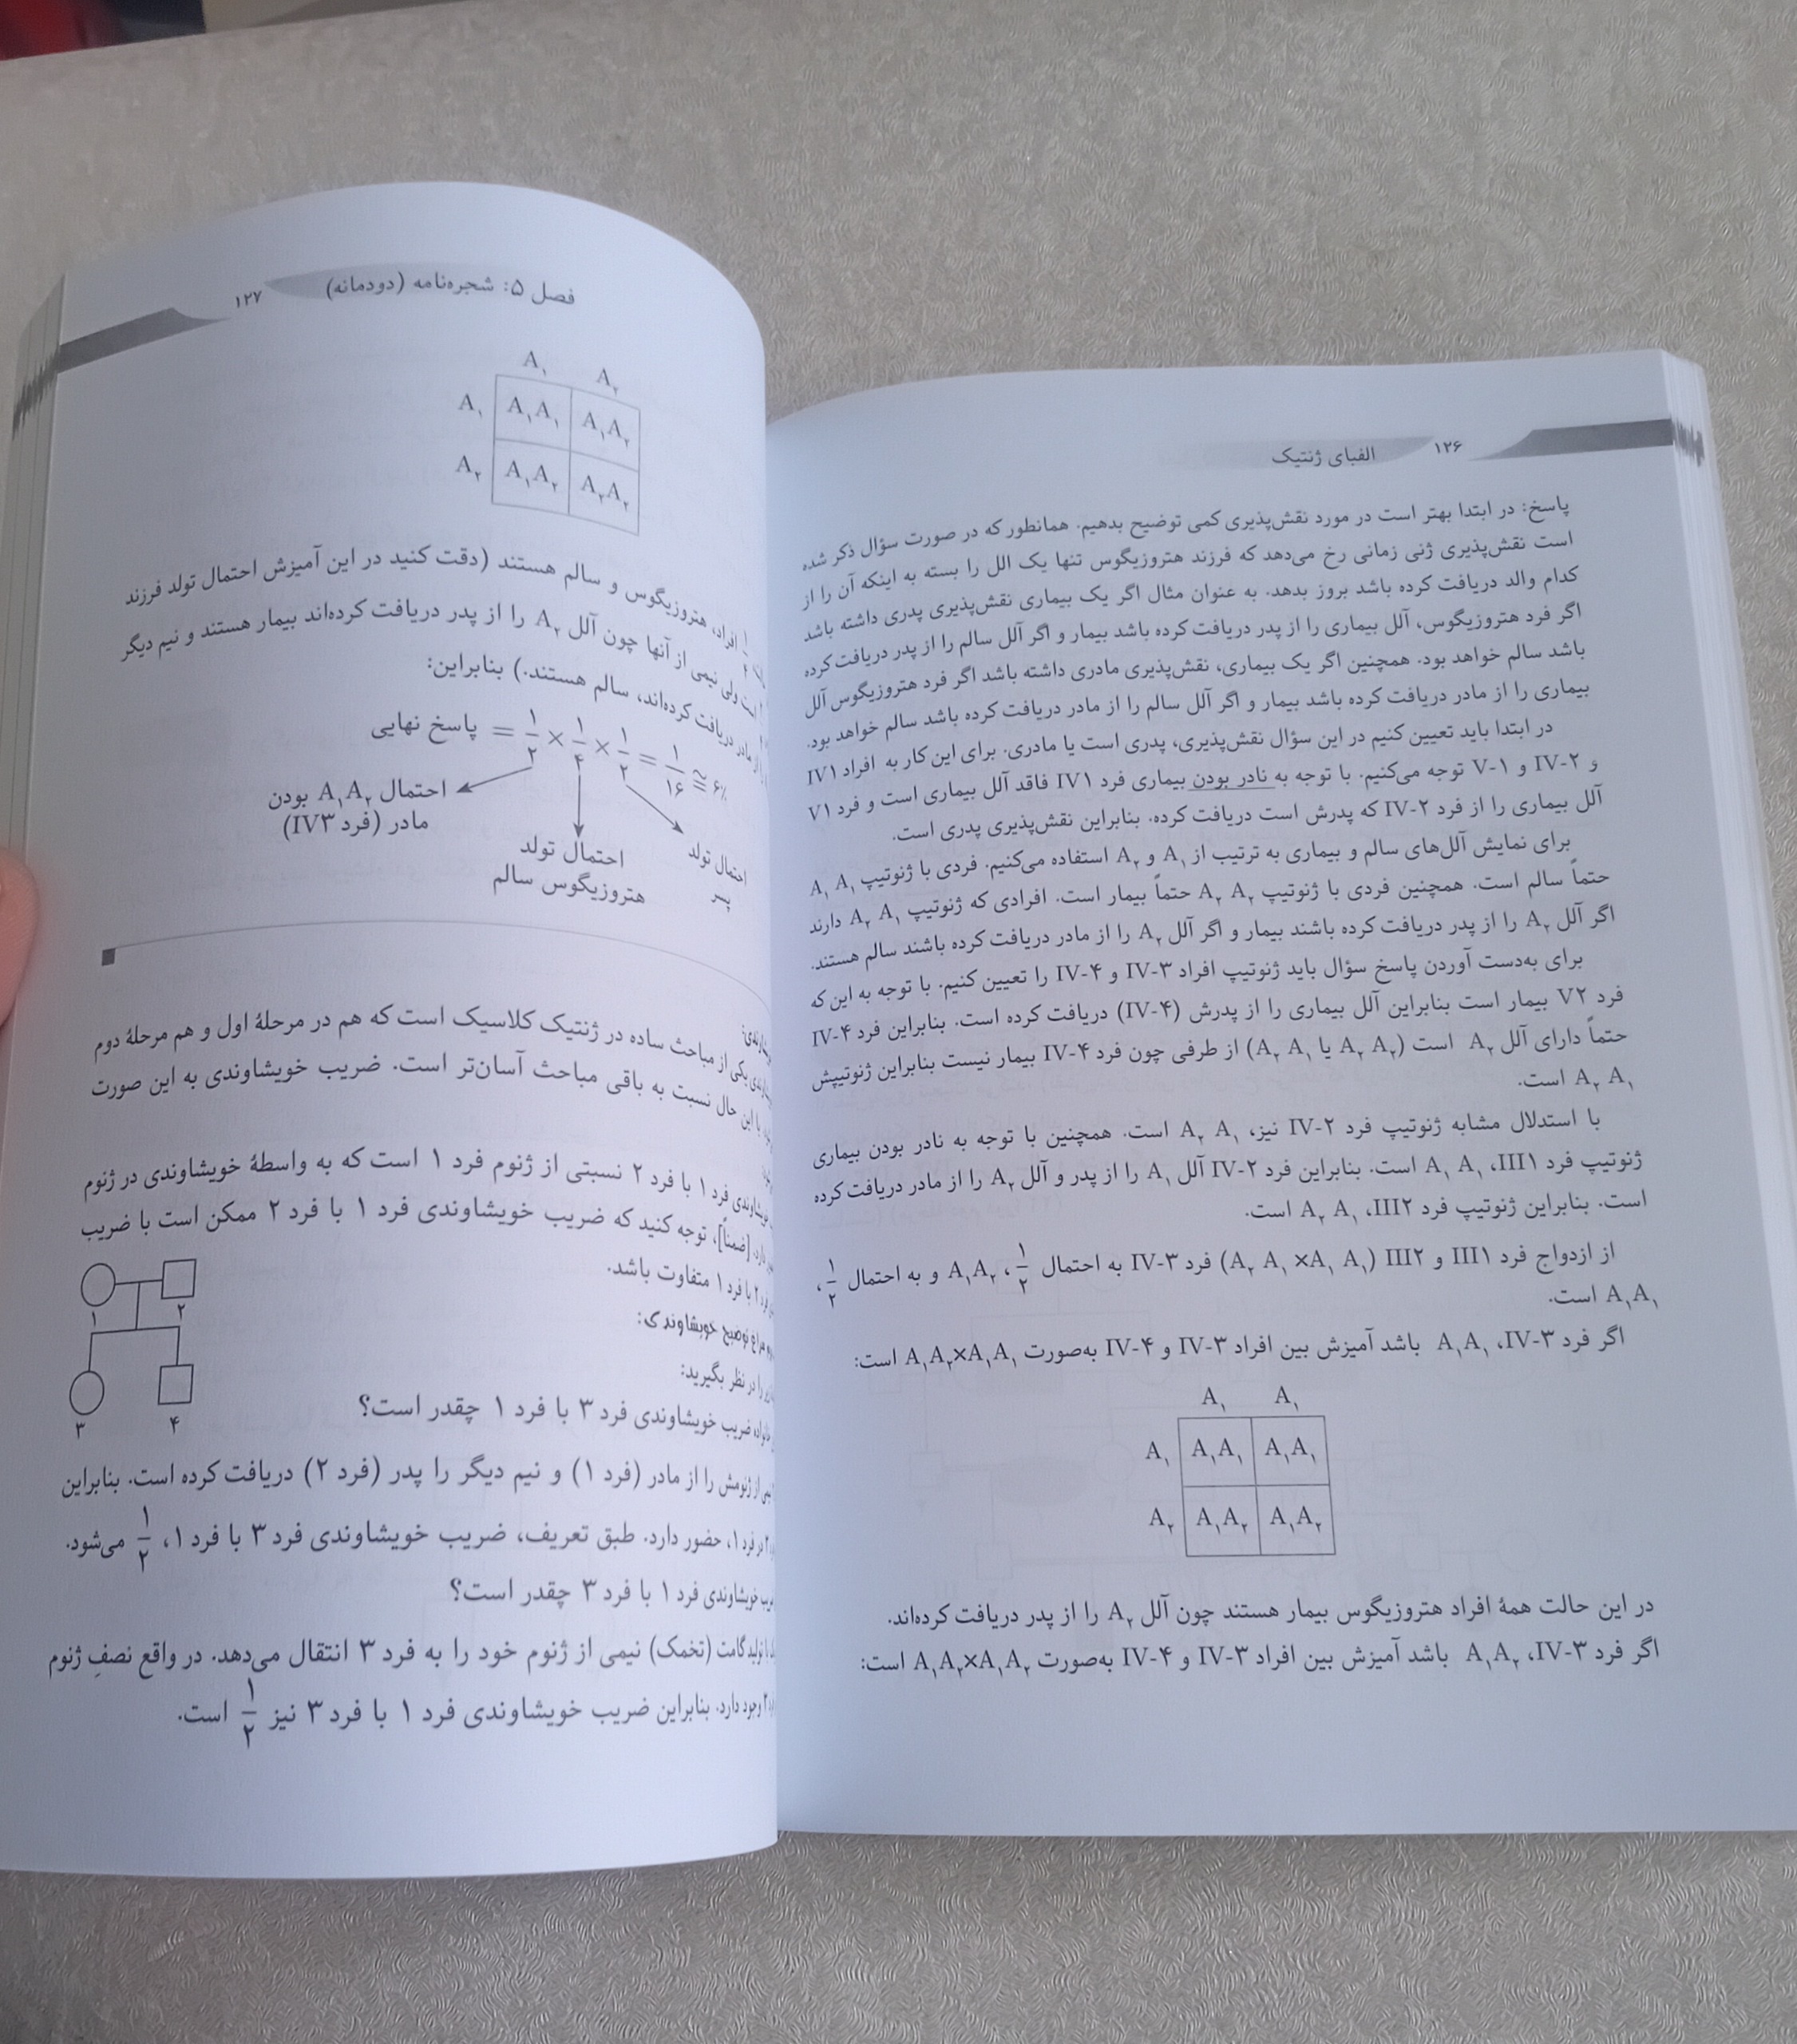 ۱۲۶ الفبای ژنتیک
پاسخ: در ابتدا بهتر است در مورد نقش‌پذیری کمی توضیح بدهیم. همانطور که در صورت سؤال ذکر شده
است نقش‌پذیری ژنی زمانی رخ می‌دهد که فرزند هتروزیگوس تنها یک الل را بسته به اینکه آن را از
کدام والد دریافت کرده باشد بروز بدهد. به عنوان مثال اگر یک بیماری نقش‌پذیری پدری داشته باشد
اگر فرد هتروزیگوس، آلل بیماری را از پدر دریافت کرده باشد بیمار و اگر آلل سالم را از پدر دریافت کرده
باشد سالم خواهد بود. همچنین اگر یک بیماری، نقش‌پذیری مادری داشته باشد اگر فرد هتروزیگوس آلل
بیماری را از مادر دریافت کرده باشد بیمار و اگر آلل سالم را از مادر دریافت کرده باشد سالم خواهد بود.
در ابتدا باید تعیین کنیم در این سؤال نقش‌پذیری، پدری است یا مادری. برای این کار به افراد IV۱
و IV-۲ و V-۱ توجه می‌کنیم. با توجه به نادر بودن بیماری فرد IV۱ فاقد آلل بیماری است و فرد V۱
آلل بیماری را از فرد IV-۲ که پدرش است دریافت کرده. بنابراین نقش‌پذیری پدری است.
برای نمایش آلل‌های سالم و بیماری به ترتیب از A۱ و A۲ استفاده می‌کنیم. فردی با ژنوتیپ A۱ A۱
حتماً سالم است. همچنین فردی با ژنوتیپ A۲ A۲ حتماً بیمار است. افرادی که ژنوتیپ A۲ A۱ دارند
اگر آلل A۲ را از پدر دریافت کرده باشند بیمار و اگر آلل A۲ را از مادر دریافت کرده باشند سالم هستند.
برای به‌دست آوردن پاسخ سؤال باید ژنوتیپ افراد IV-۳ و IV-۴ را تعیین کنیم. با توجه به این که
فرد V۲ بیمار است بنابراین آلل بیماری را از پدرش (IV-۴) دریافت کرده است. بنابراین فرد IV-۴
حتماً دارای آلل A۲ است (A۲ A۲ یا A۲ A۱) از طرفی چون فرد IV-۴ بیمار نیست بنابراین ژنوتیپش
A۲ A۱ است.
با استدلال مشابه ژنوتیپ فرد IV-۲ نیز، A۲ A۱ است. همچنین با توجه به نادر بودن بیماری
ژنوتیپ فرد III۱، A۱ A۱ است. بنابراین فرد IV-۲ آلل A۱ را از پدر و آلل A۲ را از مادر دریافت کرده
است. بنابراین ژنوتیپ فرد III۲، A۲ A۱ است.
از ازدواج فرد III۱ و III۲ (A۲ A۱ ×A۱ A۱) فرد IV-۳ به احتمال ۱/۲، A۱A۲ و به احتمال ۱/۲،
A۱A۱ است.
اگر فرد IV-۳، A۱A۱ باشد آمیزش بین افراد IV-۳ و IV-۴ به‌صورت A۱A۲×A۱A۱ است:
A۱ A۱
A۱ A۱A۱ A۱A۱
A۲ A۱A۲ A۱A۲
در این حالت همهٔ افراد هتروزیگوس بیمار هستند چون آلل A۲ را از پدر دریافت کرده‌اند.
اگر فرد IV-۳، A۱A۲ باشد آمیزش بین افراد IV-۳ و IV-۴ به‌صورت A۱A۲×A۱A۲ است:
فصل ۵: شجره‌نامه (دودمانه) ۱۲۷
A۱ A۲
A۱ A۱A۱ A۱A۲
A۲ A۱A۲ A۲A۲
افراد، هتروزیگوس و سالم هستند (دقت کنید در این آمیزش احتمال تولد فرزند
است ولی نیمی از آنها چون آلل A۲ را از پدر دریافت کرده‌اند بیمار هستند و نیم دیگر
مادر دریافت کرده‌اند، سالم هستند.) بنابراین:
پاسخ نهایی = ۱/۲ × ۱/۴ × ۱/۲ = ۱/۱۶ ≅ ۶٪
احتمال A۱A۲ بودن
مادر (فرد IV۳)
احتمال تولد
هتروزیگوس سالم
احتمال تولد
پسر
یکی از مباحث ساده در ژنتیک کلاسیک است که هم در مرحلهٔ اول و هم مرحلهٔ دوم
با این حال نسبت به باقی مباحث آسان‌تر است. ضریب خویشاوندی به این صورت
خویشاوندی فرد ۱ با فرد ۲ نسبتی از ژنوم فرد ۱ است که به واسطهٔ خویشاوندی در ژنوم
دارد. [ضمناً]، توجه کنید که ضریب خویشاوندی فرد ۱ با فرد ۲ ممکن است با ضریب
فرد ۲ با فرد ۱ متفاوت باشد.
توضیح خویشاوندی:
را در نظر بگیرید:
۱ ۲
۳ ۴
ضریب خویشاوندی فرد ۳ با فرد ۱ چقدر است؟
از ژنومش را از مادر (فرد ۱) و نیم دیگر را پدر (فرد ۲) دریافت کرده است. بنابراین
در فرد ۱، حضور دارد. طبق تعریف، ضریب خویشاوندی فرد ۳ با فرد ۱، ۱/۲ می‌شود.
خویشاوندی فرد ۱ با فرد ۳ چقدر است؟
تولید گامت (تخمک) نیمی از ژنوم خود را به فرد ۳ انتقال می‌دهد. در واقع نصفِ ژنوم
وجود دارد. بنابراین ضریب خویشاوندی فرد ۱ با فرد ۳ نیز ۱/۲ است.